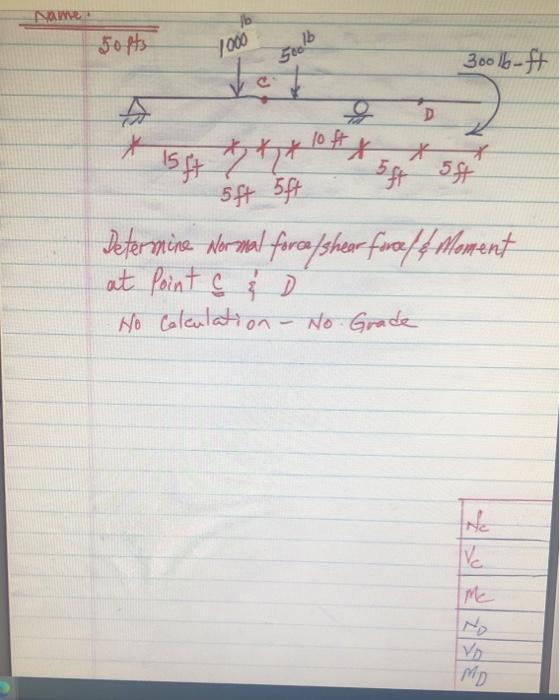 Name:
50 pts
1000 lb
500 lb
300 lb-ft
C
D
15 ft
5 ft
5 ft
10 ft
5 ft
5 ft
Determine Normal force/shear force/& Moment
at Point C & D
No Calculation - No Grade
Nc
Vc
Mc
ND
VD
MD